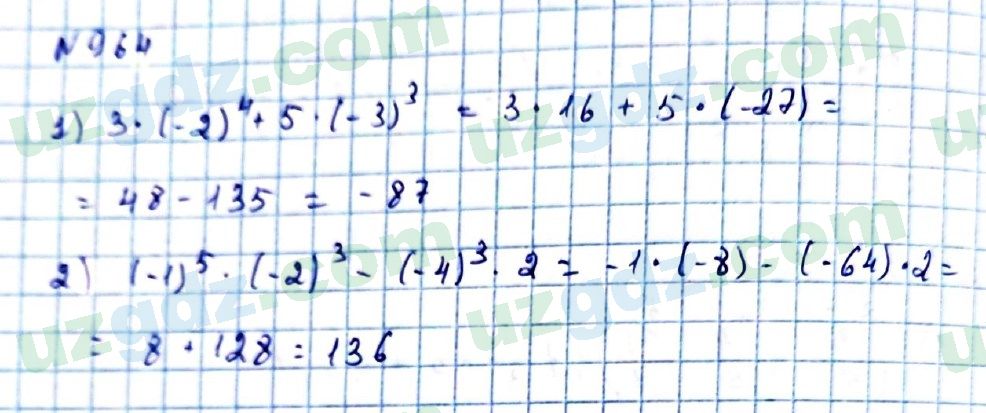 N 964
1) 3 · (-2)⁴ + 5 · (-3)³ = 3 · 16 + 5 · (-27) =
= 48 - 135 = -87
2) (-1)⁵ · (-2)³ - (-4)³ · 2 = -1 · (-8) - (-64) · 2 =
= 8 + 128 = 136
uzgdz.com
uzgdz.com
uzgdz.com
uzgdz.com